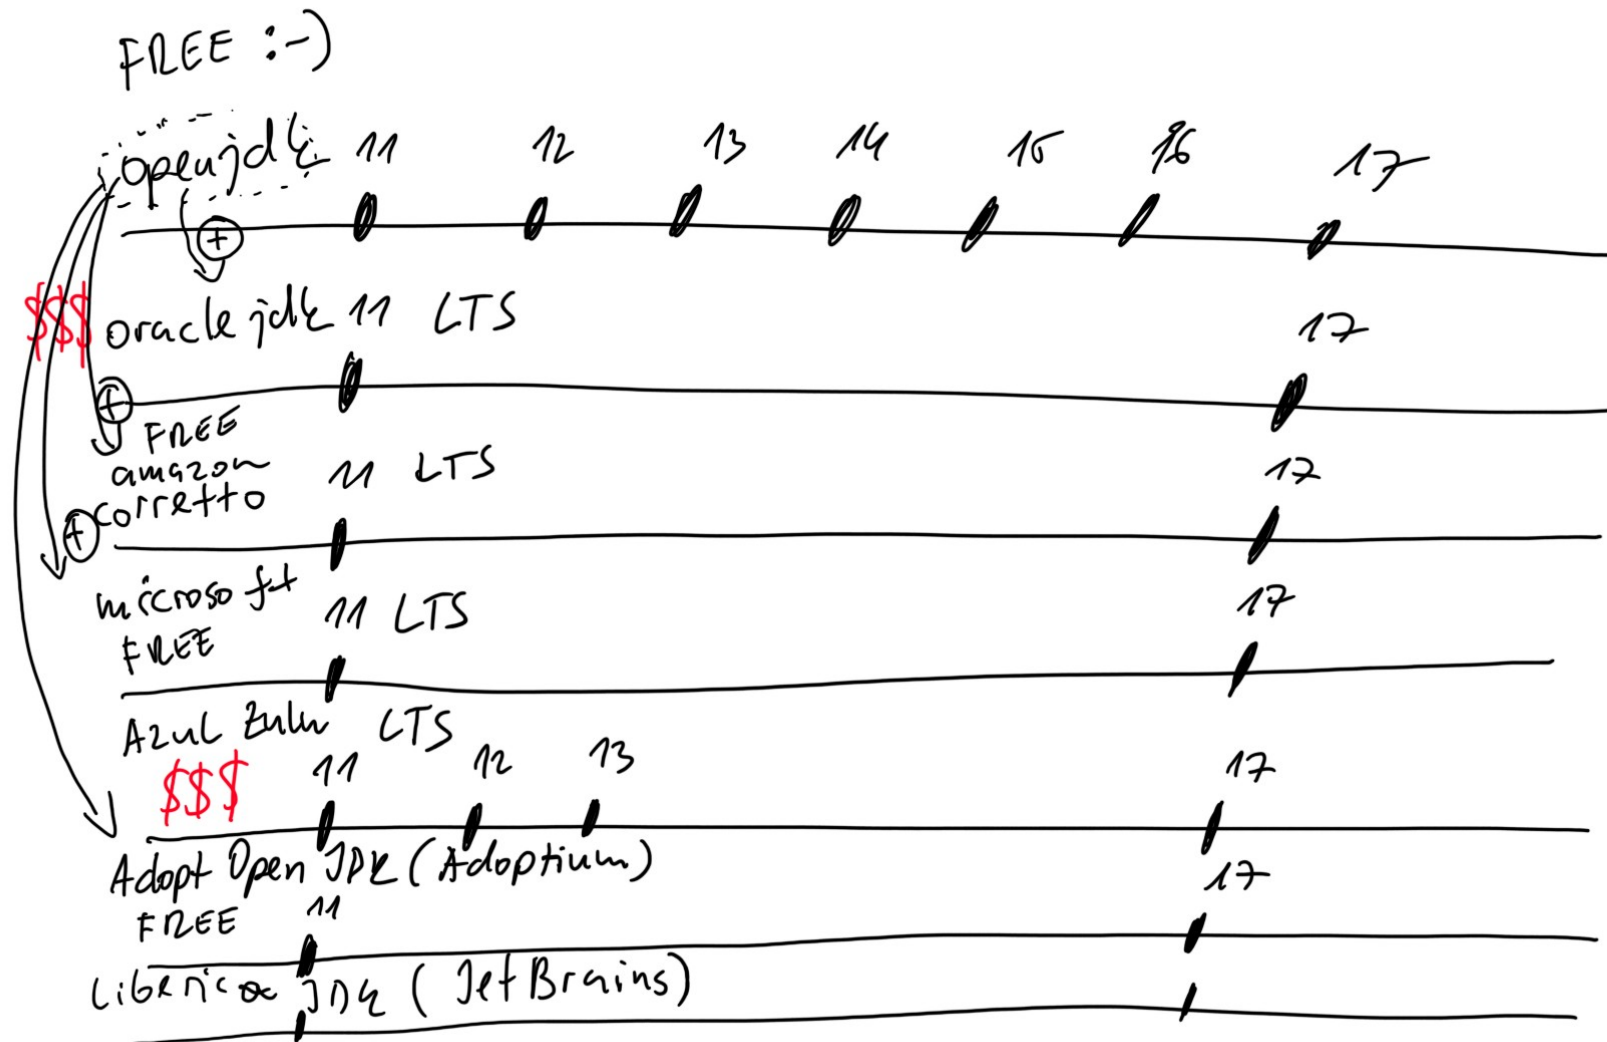 FREE :-)
openjdk 11 12 13 14 15 16 17
+
$$$ oracle jdk 11 LTS 17
+
FREE
amazon 11 LTS 17
corretto
+
microsoft 11 LTS 17
FREE
Azul Zulu LTS
$$$ 11 12 13 17
Adopt Open JDK (Adoptium)
FREE 11 17
Liberica JDK (JetBrains)